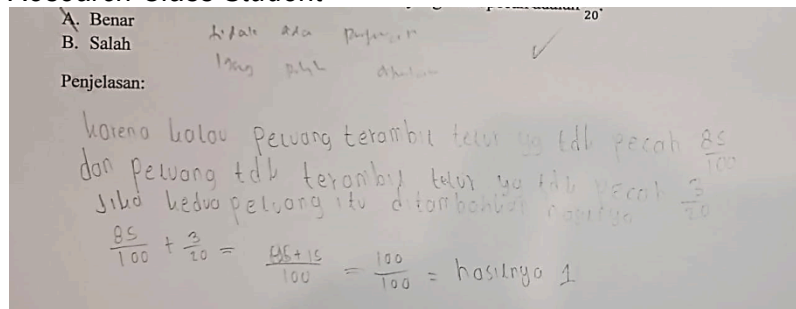 Research Class Student
20.
A. Benar
B. Salah
tidak ada
yang
Penjelasan:
karena kalau peluang terambil telur yg tdk pecah 85/100
dan peluang tdk terambil telur yg tdk pecah 3/20
jika kedua peluang itu ditambahkan hasilnya
85/100 + 3/20 = 85+15/100 = 100/100 = hasilnya 1